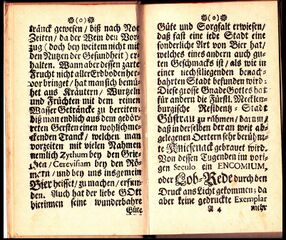 (o)
kränck gewesen / biß nach Noe
Zeiten / da der Wein den Vor-
zug (doch bey weitem nicht mit
den Nutzen der Gesundheit) er-
halten. Wann aber dessen zarte
Frucht nicht aller Erdboden her-
vor bringet / hat man sich bemü-
het aus Kräutern / Wurzeln
und Früchten mit dem reinen
Wasser Getränck zu bereiten /
biß man endlich aus dem gedör-
reten Gersten einen wohlschme-
ckenden Tranck / welchen man
vorzeiten mit vielen Nahmen
nemlich Zythum bey den Grie-
chen / Cerevisiam bey den Rö-
mern / und bey uns insgemein
Bier heisset / zu machen / erfun-
den. Auch hat der liebe GOtt
hierinnen seine wunderbahre
Güte
(o)
Güte und Sorgfalt erwiesen /
daß fast eine jede Stadt eine
sonderliche Art von Bier hat /
welches eines andern auch gu-
ten Geschmacks ist / als wie in
einer nechstliegenden benach-
bahrten Stadt befunden wird.
Diese grosse Gnade Gottes hat
für andern die Fürstl. Mecklen-
burgische Residentz-Stadt
Güstrau zu rühmen / darum /
daß in derselben der an weit ab-
gelegenen Oertern sehr berühm-
te Kniesenack gebrauet wird.
Von dessen Tugenden im vori-
gen Seculo ein ENCOMIUM,
oder Lob-Rede durch den
Druck ans Licht gekommen; da
aber keine gedruckte Exemplar
A 4 mehr